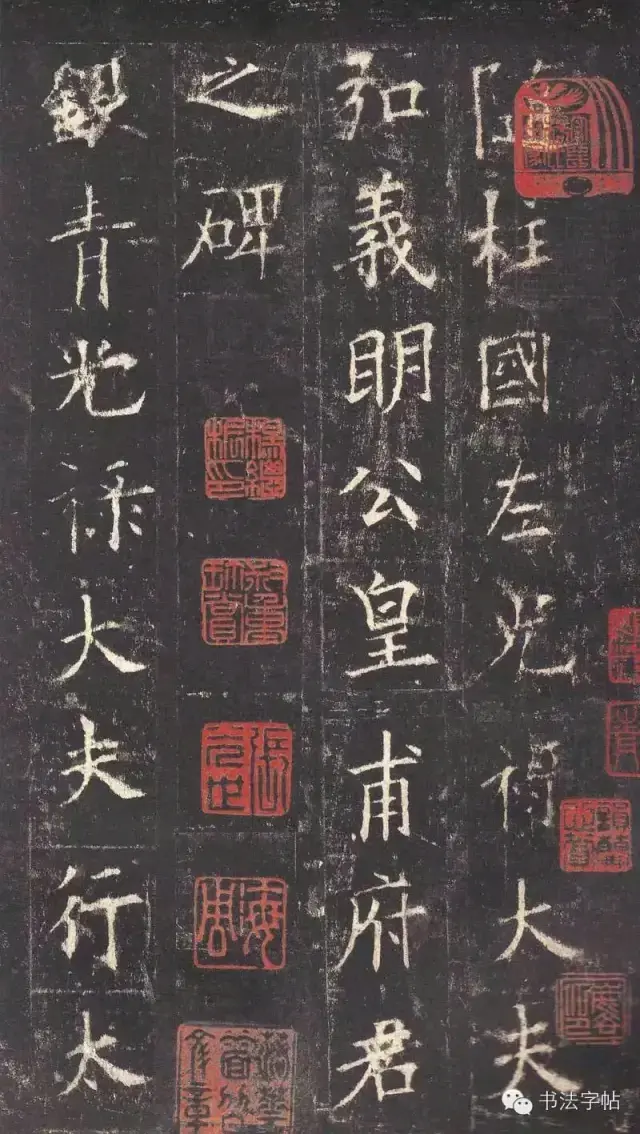 隨柱國左光祿大夫
弘義明公皇甫府君
之碑
銀青光祿大夫行太
书法字帖